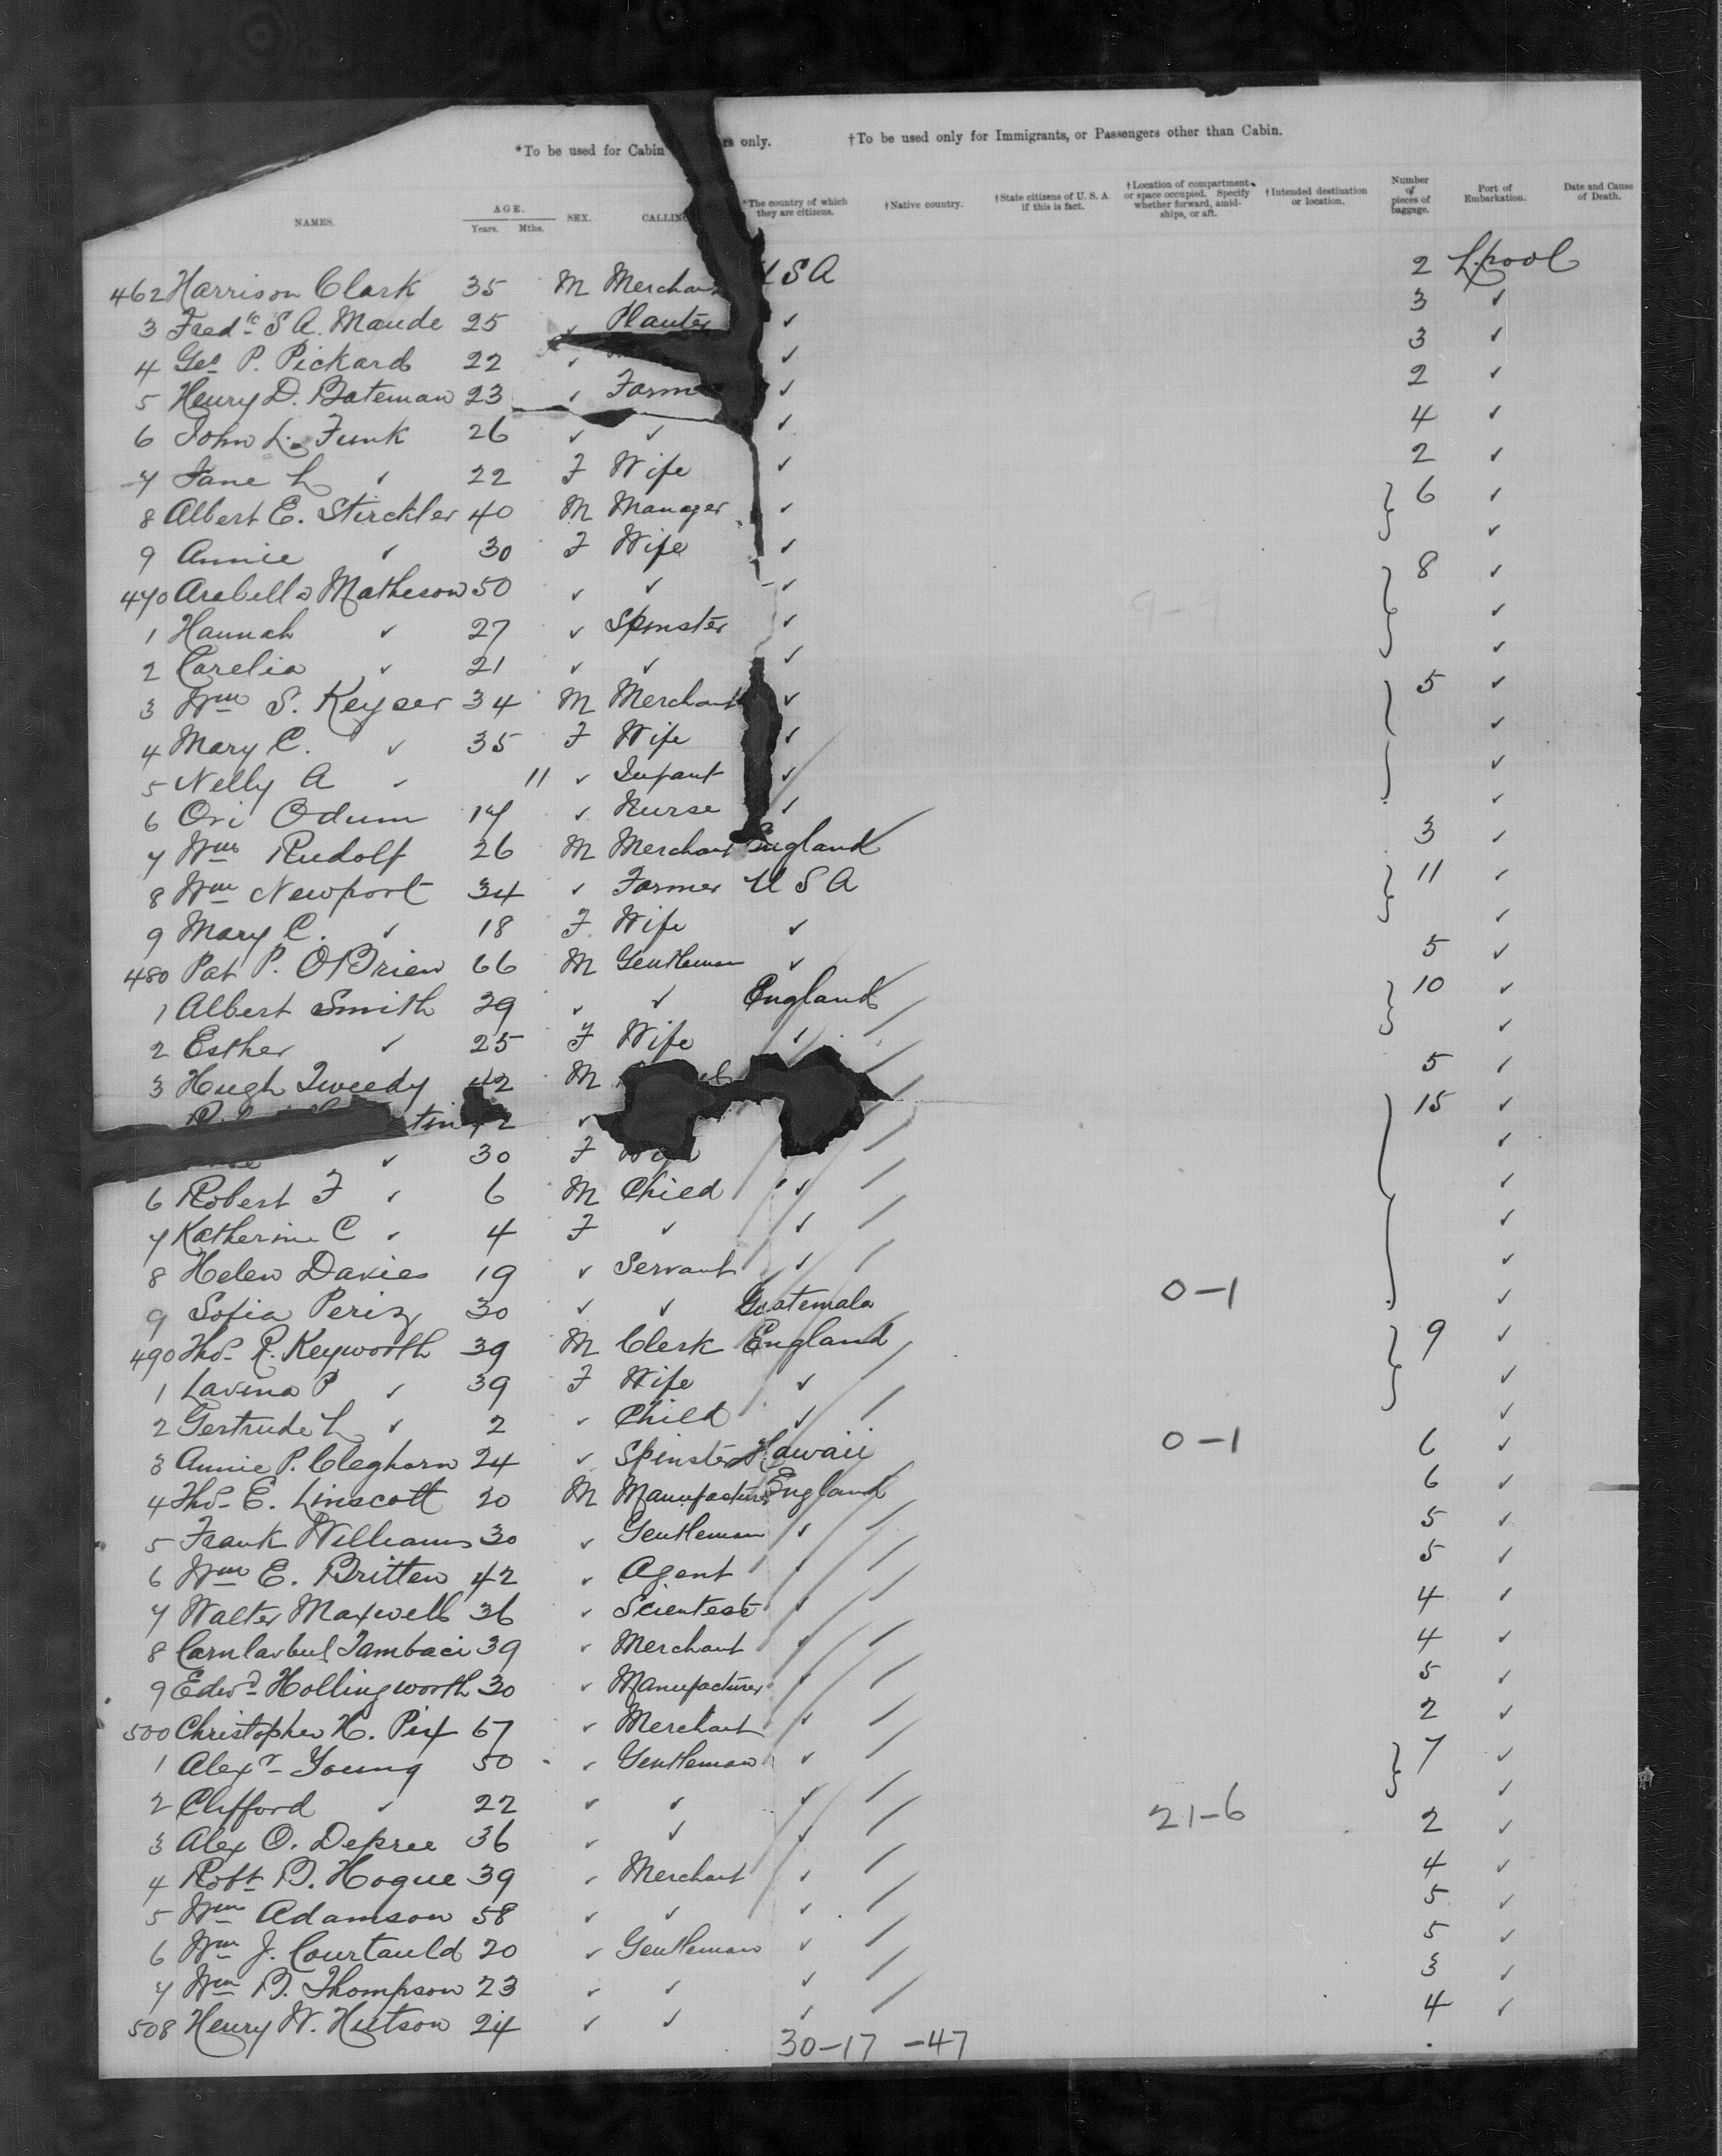 *To be used for Cabin rs only. †To be used only for Immigrants, or Passengers other than Cabin.
NAMES. AGE. Years. Mths. SEX. CALLIN *The country of which they are citizens. †Native country. †State citizens of U. S. A. if this is fact. †Location of compartment or space occupied. Specify whether forward, amidships, or aft. †Intended destination or location. Number of pieces of baggage. Port of Embarkation. Date and Cause of Death.
462 Harrison Clark 35 M Merchan U S A 2 L.pool
3 Fredk S A. Maude 25 ✓ Planter ✓ 3 ✓
4 Geo P. Pickard 22 ✓ ✓ 3 ✓
5 Henry D. Bateman 23 ✓ Farme ✓ 2 ✓
6 John L. Funk 26 ✓ ✓ ✓ 4 ✓
7 Jane L ✓ 22 F Wife ✓ 2 ✓
8 Albert E. Stirckler 40 M Manager ✓ } 6 ✓
9 Annie ✓ 30 F Wife ✓ ✓
470 Arabella Matheson 50 ✓ ✓ ✓ } 8 ✓
1 Hannah ✓ 27 ✓ Spinster ✓ 9-9 ✓
2 Carelia ✓ 21 ✓ ✓ ✓ ✓
3 Wm S. Keyser 34 M Merchant ✓ } 5 ✓
4 Mary C. ✓ 35 F Wife ✓ ✓
5 Nelly A ✓ 11 ✓ Infant ✓ ✓
6 Ori Odum 17 ✓ Nurse ✓ ✓
7 Wm Rudolf 26 M Merchant England 3 ✓
8 Wm Newport 34 ✓ Farmer U S A } 11 ✓
9 Mary C. ✓ 18 F Wife ✓ ✓
480 Pat P. O'Brien 66 M Gentleman ✓ 5 ✓
1 Albert Smith 29 ✓ ✓ England } 10 ✓
2 Esther ✓ 25 F Wife ✓ ✓
3 Hugh Tweedy 42 M 5 ✓
tin 42 ✓ } 15 ✓
✓ 30 F Wife ✓
6 Robert F ✓ 6 M Child ✓ ✓
7 Katherine C ✓ 4 F ✓ ✓ ✓
8 Helen Davies 19 ✓ Servant ✓ ✓
9 Sofia Periz 30 ✓ ✓ Guatemala 0-1 ✓
490 Thos R. Keyworth 39 M Clerk England } 9 ✓
1 Lavina P ✓ 39 F Wife ✓ ✓
2 Gertrude L ✓ 2 ✓ Child ✓ ✓
3 Annie P. Cleghorn 24 ✓ Spinster Hawaii 0-1 6 ✓
4 Thos E. Linscott 20 M Manufacturer England 6 ✓
5 Frank Williams 30 ✓ Gentleman ✓ 5 ✓
6 Wm E. Britten 42 ✓ Agent ✓ 5 ✓
7 Walter Maxwell 36 ✓ Scientest ✓ 4 ✓
8 Tambaci 39 ✓ Merchant ✓ 4 ✓
9 Edwd Hollingworth 30 ✓ Manufacturer ✓ 5 ✓
500 Christopher H. Pix 67 ✓ Merchant ✓ 2 ✓
1 Alexr Young 50 ✓ Gentleman ✓ } 7 ✓
2 Clifford ✓ 22 ✓ ✓ ✓ ✓
3 Alex O. Depree 36 ✓ ✓ ✓ 21-6 2 ✓
4 Robt B. Hogue 39 ✓ Merchant ✓ 4 ✓
5 Wm Adamson 58 ✓ ✓ ✓ 5 ✓
6 Wm J. Courtauld 20 ✓ Gentleman ✓ 5 ✓
7 Wm B. Thompson 23 ✓ ✓ ✓ 3 ✓
508 Henry W. Hutson 24 ✓ ✓ ✓ 4 ✓
30-17 -47